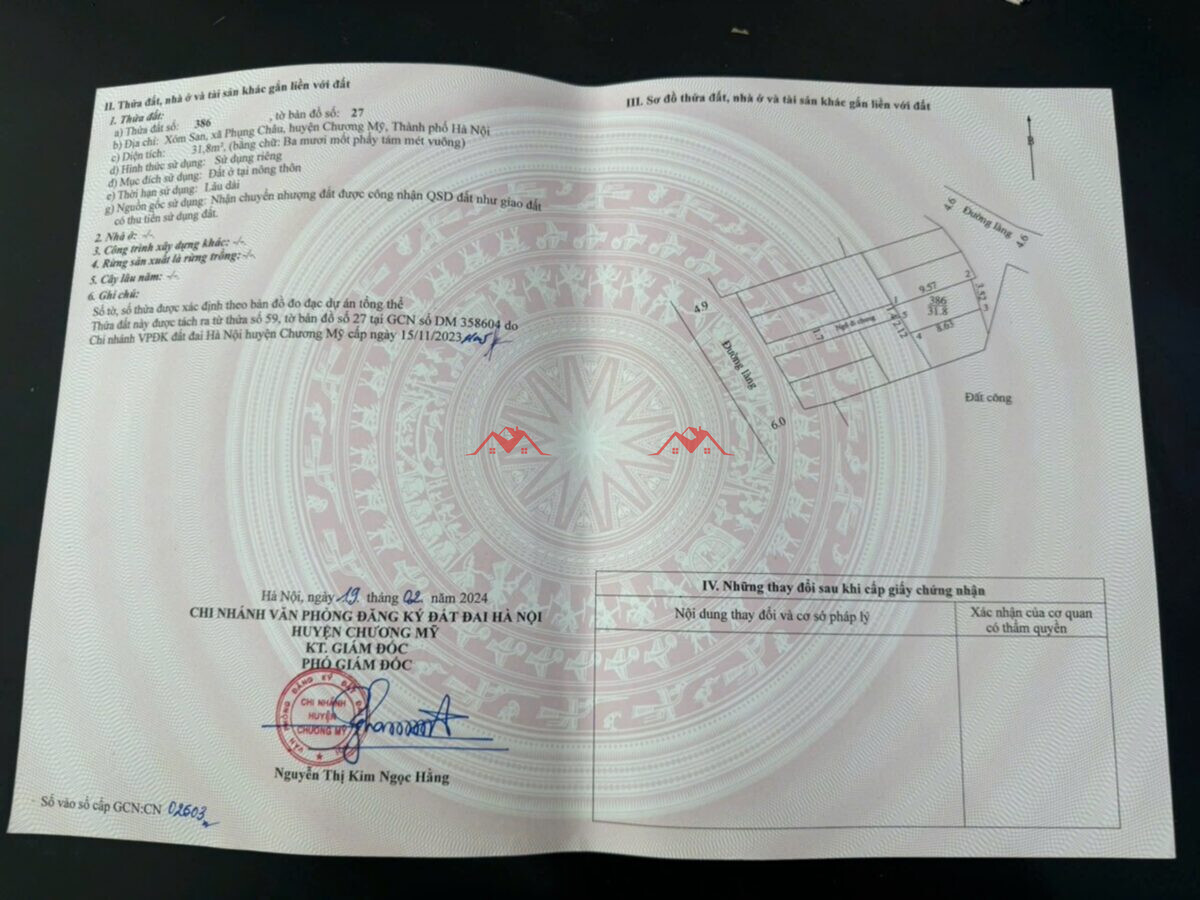 II. Thửa đất, nhà ở và tài sản khác gắn liền với đất
1. Thửa đất:
a) Thửa đất số: 386 , tờ bản đồ số: 27
b) Địa chỉ: Xóm San, xã Phụng Châu, huyện Chương Mỹ, Thành phố Hà Nội
c) Diện tích: 31,8m², (bằng chữ: Ba mươi mốt phẩy tám mét vuông)
d) Hình thức sử dụng: Sử dụng riêng
đ) Mục đích sử dụng: Đất ở tại nông thôn
e) Thời hạn sử dụng: Lâu dài
g) Nguồn gốc sử dụng: Nhận chuyển nhượng đất được công nhận QSD đất như giao đất
có thu tiền sử dụng đất.
2. Nhà ở: -/-
3. Công trình xây dựng khác: -/-
4. Rừng sản xuất là rừng trồng: -/-
5. Cây lâu năm: -/-
6. Ghi chú:
Số tờ, số thửa được xác định theo bản đồ đo đạc dự án tổng thể
Thửa đất này được tách ra từ thửa số 59, tờ bản đồ số 27 tại GCN số DM 358604 do
Chi nhánh VPĐK đất đai Hà Nội huyện Chương Mỹ cấp ngày 15/11/2023
Hà Nội, ngày 19 tháng 02 năm 2024
CHI NHÁNH VĂN PHÒNG ĐĂNG KÝ ĐẤT ĐAI HÀ NỘI
HUYỆN CHƯƠNG MỸ
KT. GIÁM ĐỐC
PHÓ GIÁM ĐỐC
VĂN PHÒNG ĐĂNG KÝ ĐẤT
CHI NHÁNH
HUYỆN
CHƯƠNG MỸ
Nguyễn Thị Kim Ngọc Hằng
Số vào sổ cấp GCN:CN 02603
III. Sơ đồ thửa đất, nhà ở và tài sản khác gắn liền với đất
B
4.6
Đường làng
4.6
4.9
Đường làng
6.0
1.7
Ngõ đi chung
1
9.57
2
386
31.8
3.52
3
8.65
4
5
2.12
Đất công
IV. Những thay đổi sau khi cấp giấy chứng nhận
Nội dung thay đổi và cơ sở pháp lý
Xác nhận của cơ quan
có thẩm quyền